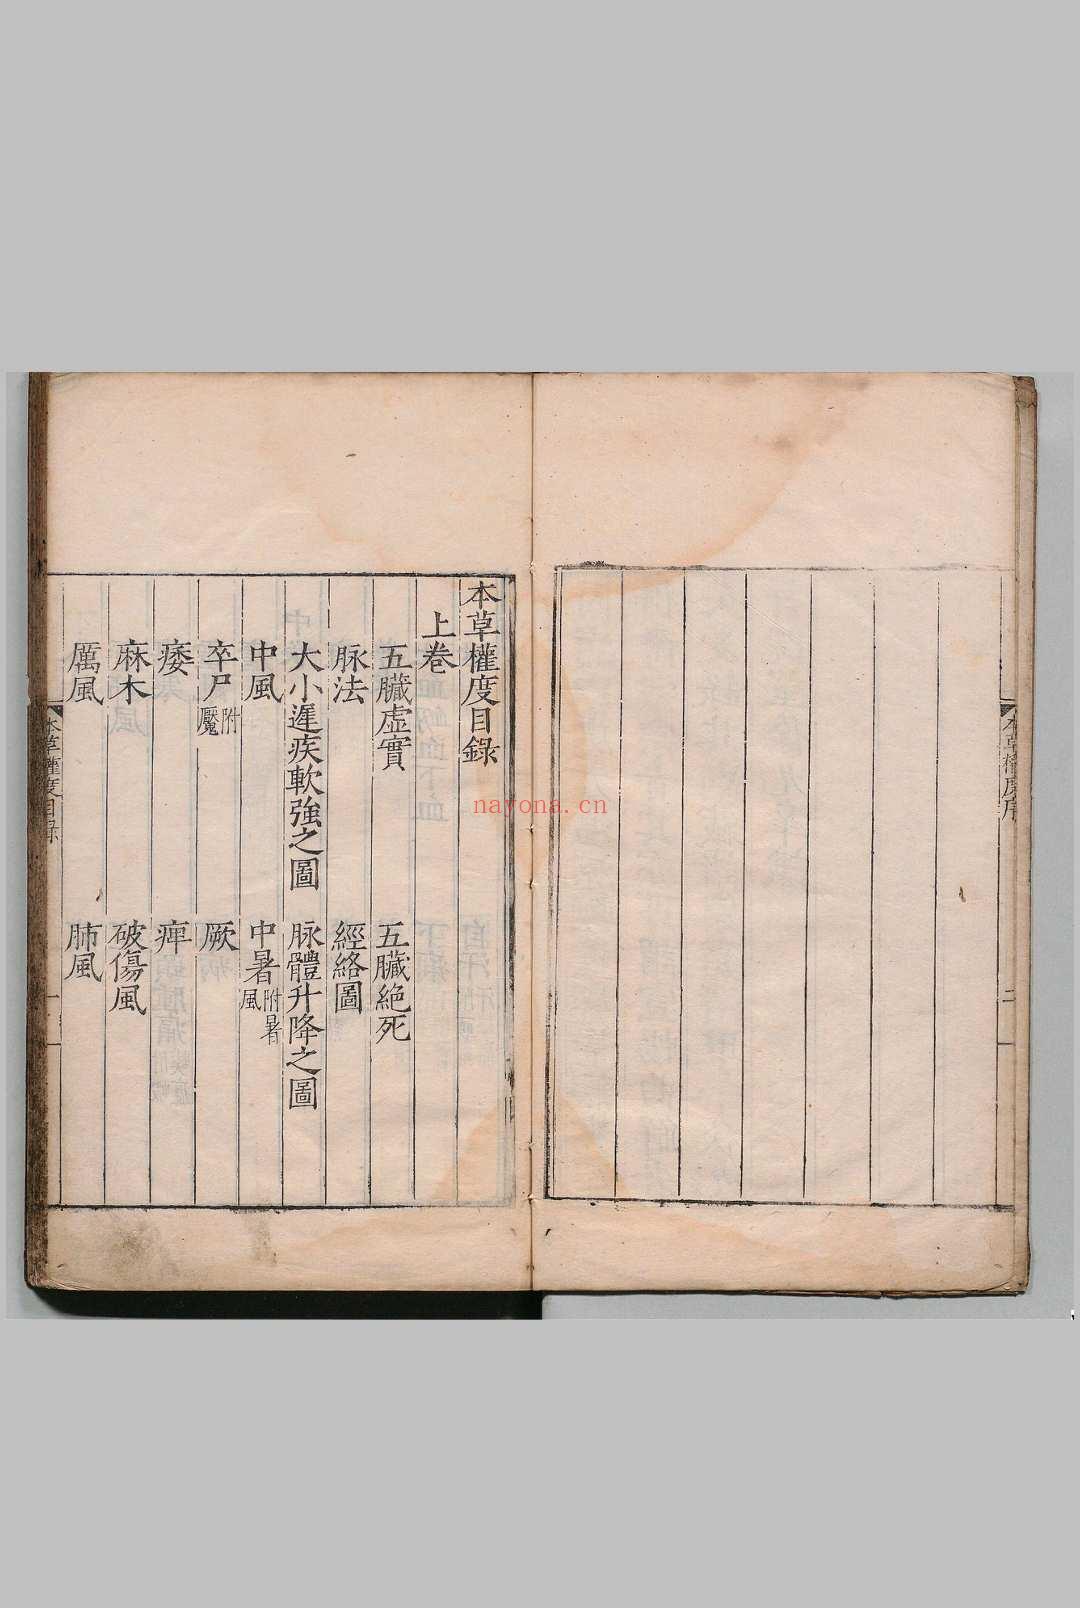 本草權度序
二
本草權度目錄
上卷
五臟虛實 五臟絕死
脉法 經絡圖
大小遲疾軟強之圖 脉體升降之圖
中風 中暑附暑風
卒尸附魘 厥
痿 痺
麻木 破傷風
厲風 肺風
本草權度目錄
一
nayona.cn